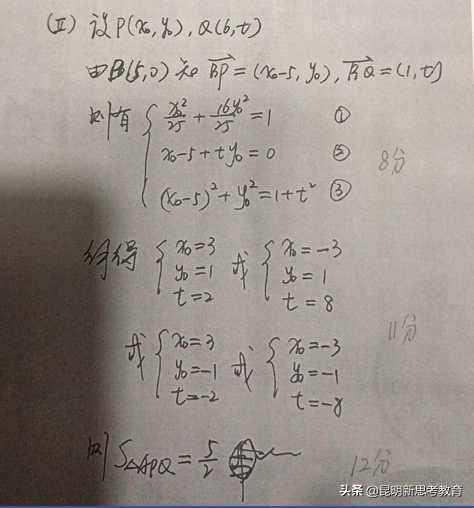 (Ⅱ) 设P(x₀,y₀), Q(6,t)
由B(5,0)知 BP→=(x₀-5,y₀), BQ→=(1,t)
则有 { x₀²/25 + 16y₀²/25 = 1 ①
x₀-5+ty₀=0 ②
(x₀-5)²+y₀²=1+t² ③
8分
解得 { x₀=3 y₀=1 t=2 或 { x₀=-3 y₀=1 t=8
或 { x₀=3 y₀=-1 t=-2 或 { x₀=-3 y₀=-1 t=-8
11分
则 S△APQ = 5/2
12分
头条 @昆明新思考教育